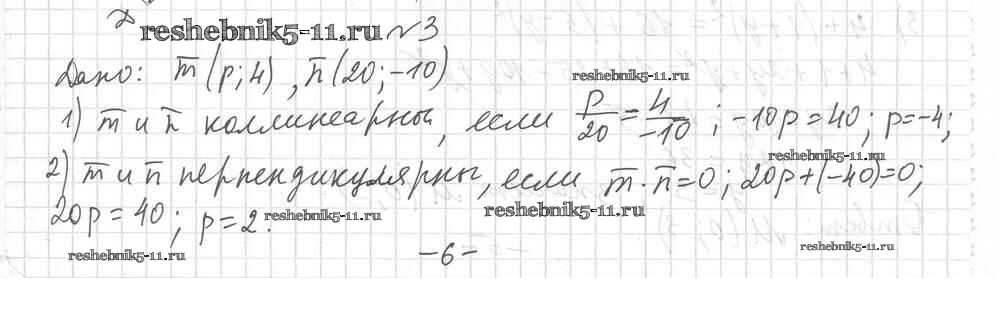 reshebnik5-11.ru №3
Дано: m̅ (p; 4), n̅ (20; -10) reshebnik5-11.ru
1) m̅ и n̅ коллинеарны, если p/20 = 4/-10; -10p = 40; p = -4;
reshebnik5-11.ru
2) m̅ и n̅ перпендикулярны, если m̅ · n̅ = 0; 20p + (-40) = 0;
20p = 40; p = 2. reshebnik5-11.ru reshebnik5-11.ru
reshebnik5-11.ru -6- reshebnik5-11.ru